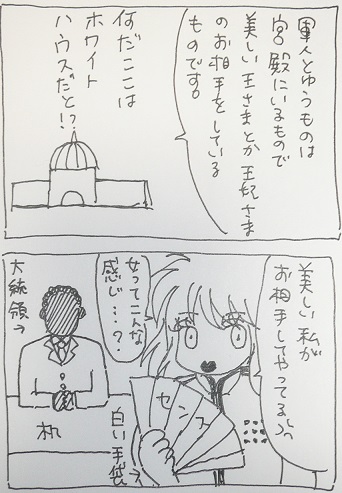 軍人とゆうものは
宮殿にいるもので
美しい王さまとか王妃さま
のお相手をしている
ものです。
何だここは
ホワイト
ハウスだと!?
美しい私が
お相手してやってる
女ってこんな
感じ…?
大統領→
机
白い手袋→
センス